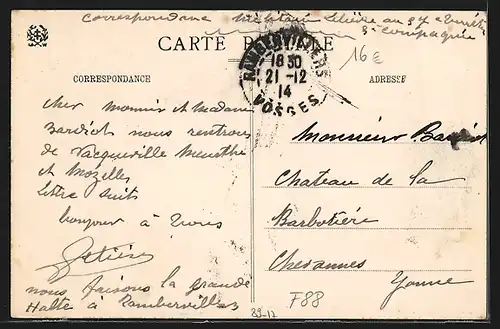 Correspondance Militaire Lelièvre au 37e
5e Compagnie
CARTE POSTALE
16€
RAMBERVILLERS
18 30
21-12
14
VOSGES
CORRESPONDANCE
ADRESSE
Cher Monsieur et Madame
nous rentrons
de Vacqueville Meurthe
et Mozelles
lettre suit
bonjour à tous
nous faisons la grande
Halte à Rambervillers
Monsieur
Chateau de la
Barbotière
Chevannes
Yonne
F88
89-12